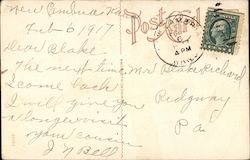 New Cambria Ka
Feb 6 1917
Post Card
CAMBRI
6
4 PM
Dear Blake
The next time
I come back
I will give you
a long visit
your cousin
J N Bell
Mr Blake Richard
Ridgway
Pa.